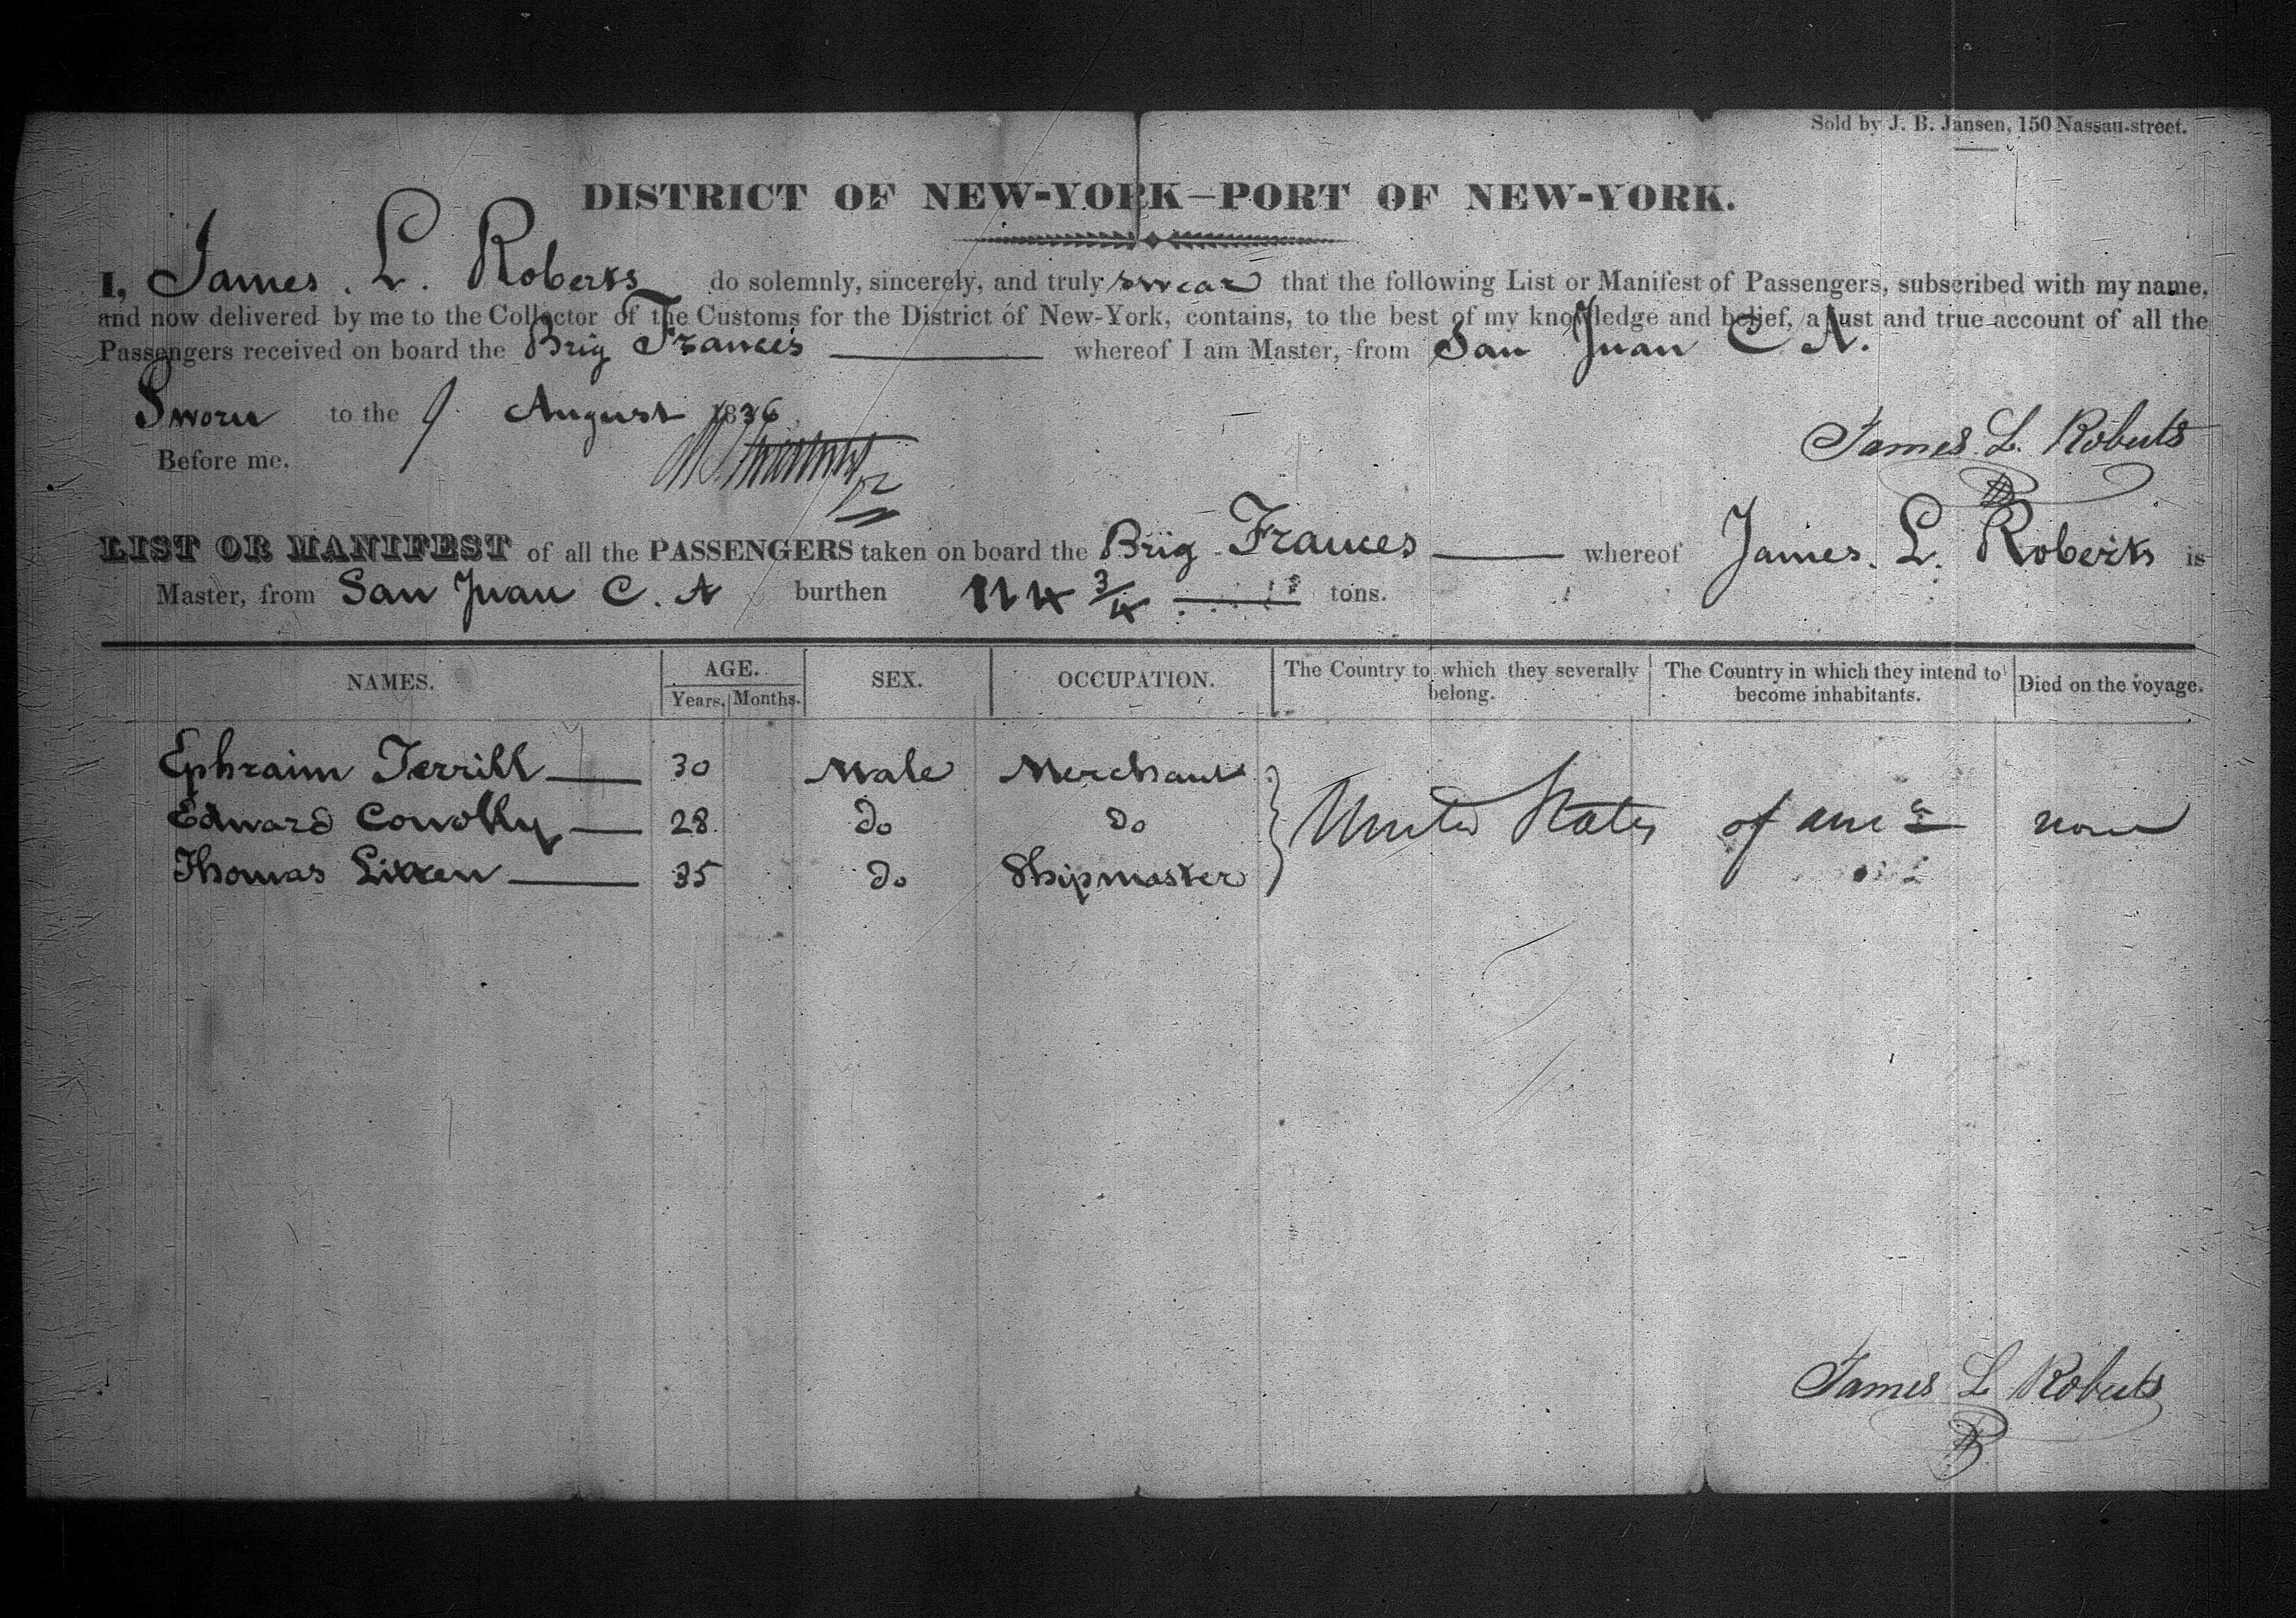 Sold by J. B. Jansen, 150 Nassau-street.
DISTRICT OF NEW-YORK—PORT OF NEW-YORK.
I, James. L. Roberts do solemnly, sincerely, and truly swear that the following List or Manifest of Passengers, subscribed with my name,
and now delivered by me to the Collector of the Customs for the District of New-York, contains, to the best of my knowledge and belief, a just and true account of all the
Passengers received on board the Brig Frances whereof I am Master, from San Juan C A.
Sworn to the 9 August 1836
Before me.
James L. Roberts
LIST OR MANIFEST of all the PASSENGERS taken on board the Brig Frances whereof James. L. Roberts is
Master, from San Juan C. A burthen 114 3/4 tons.
NAMES. AGE. Years. Months. SEX. OCCUPATION. The Country to which they severally belong. The Country in which they intend to become inhabitants. Died on the voyage.
Ephraim Terrill 30 Male Merchant
Edward Conolly 28 do do United States of Ame ca none
Thomas 35 do Shipmaster
James L Roberts